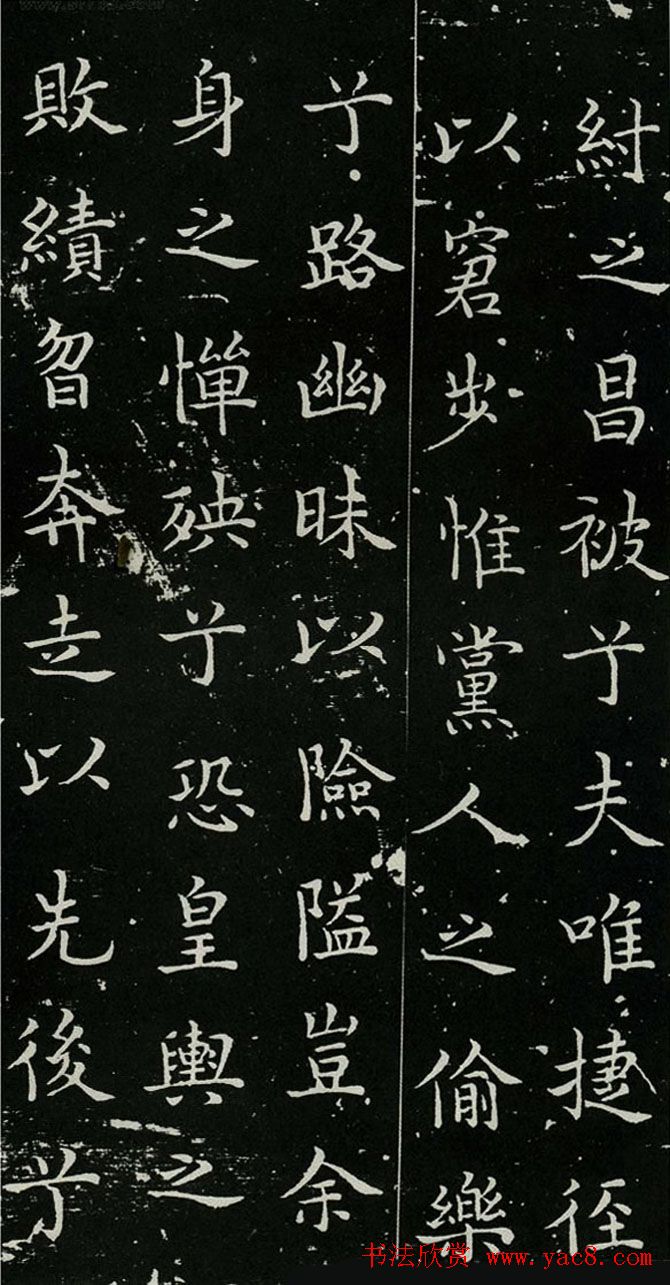 紂之昌被兮夫唯捷徑
以窘步惟黨人之偷樂
兮路幽昧以險隘豈余
身之憚殃兮恐皇輿之
敗績曶奔走以先後兮
书法欣赏 www.yac8.com